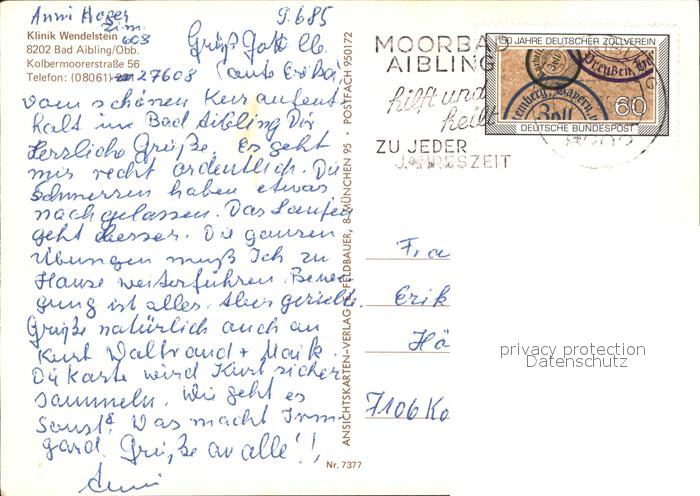 Anni Hoger
Zim. 603
9.6.85
Klinik Wendelstein
8202 Bad Aibling/Obb.
Kolbermoorerstraße 56
Telefon: (08061) 27608
Grüß Gott lb.
Tante Erika
vom schönen Kuraufent
halt in Bad Aibling Dir
herzliche Grüße. Es geht
mir recht ordentlich. Die
Schmerzen haben etwas
nachgelassen. Das Laufen
geht besser. Die ganzen
Übungen muß ich zu
Hause weiterführen. Bewe
gung ist alles. Aber gezielte.
Grüße natürlich auch an
Kurt Waltraud + Maik.
Die Karte wird Kurt sicher
sammeln. Wie geht es
sonst? Was macht Irm
gard. Grüße an alle!!
Anni
ANSICHTSKARTEN-VERLAG FELDBAUER, 8 MÜNCHEN 95 · POSTFACH 950172
Nr. 7377
MOORBAD
AIBLING
hilft und
heilt
ZU JEDER
JAHRESZEIT
150 JAHRE DEUTSCHER ZOLLVEREIN
60
DEUTSCHE BUNDESPOST
Fra
Erik
Hä
7106 Ko
privacy protection
Datenschutz